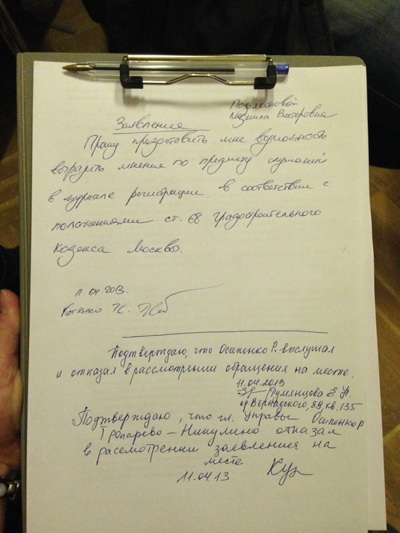 Людмила Викторовна
Заявление
Прошу предоставить мне возможность
выразить мнение по предмету слушаний
в журнале регистрации в соответствии с
положениями ст. 68 градостроительного
Кодекса Москвы.
11.04.2013.
Подтверждаю, что Осипенко Р. выслушал
и отказал в рассмотрении обращения на месте.
11.04.2013
Румянцева Е. Н.
пр Вернадского, 89, кв. 135
Подтверждаю, что гл. Управы Осипенко
Тропарево-Никулино отказал
в рассмотрении заявления на
месте
11.04.13